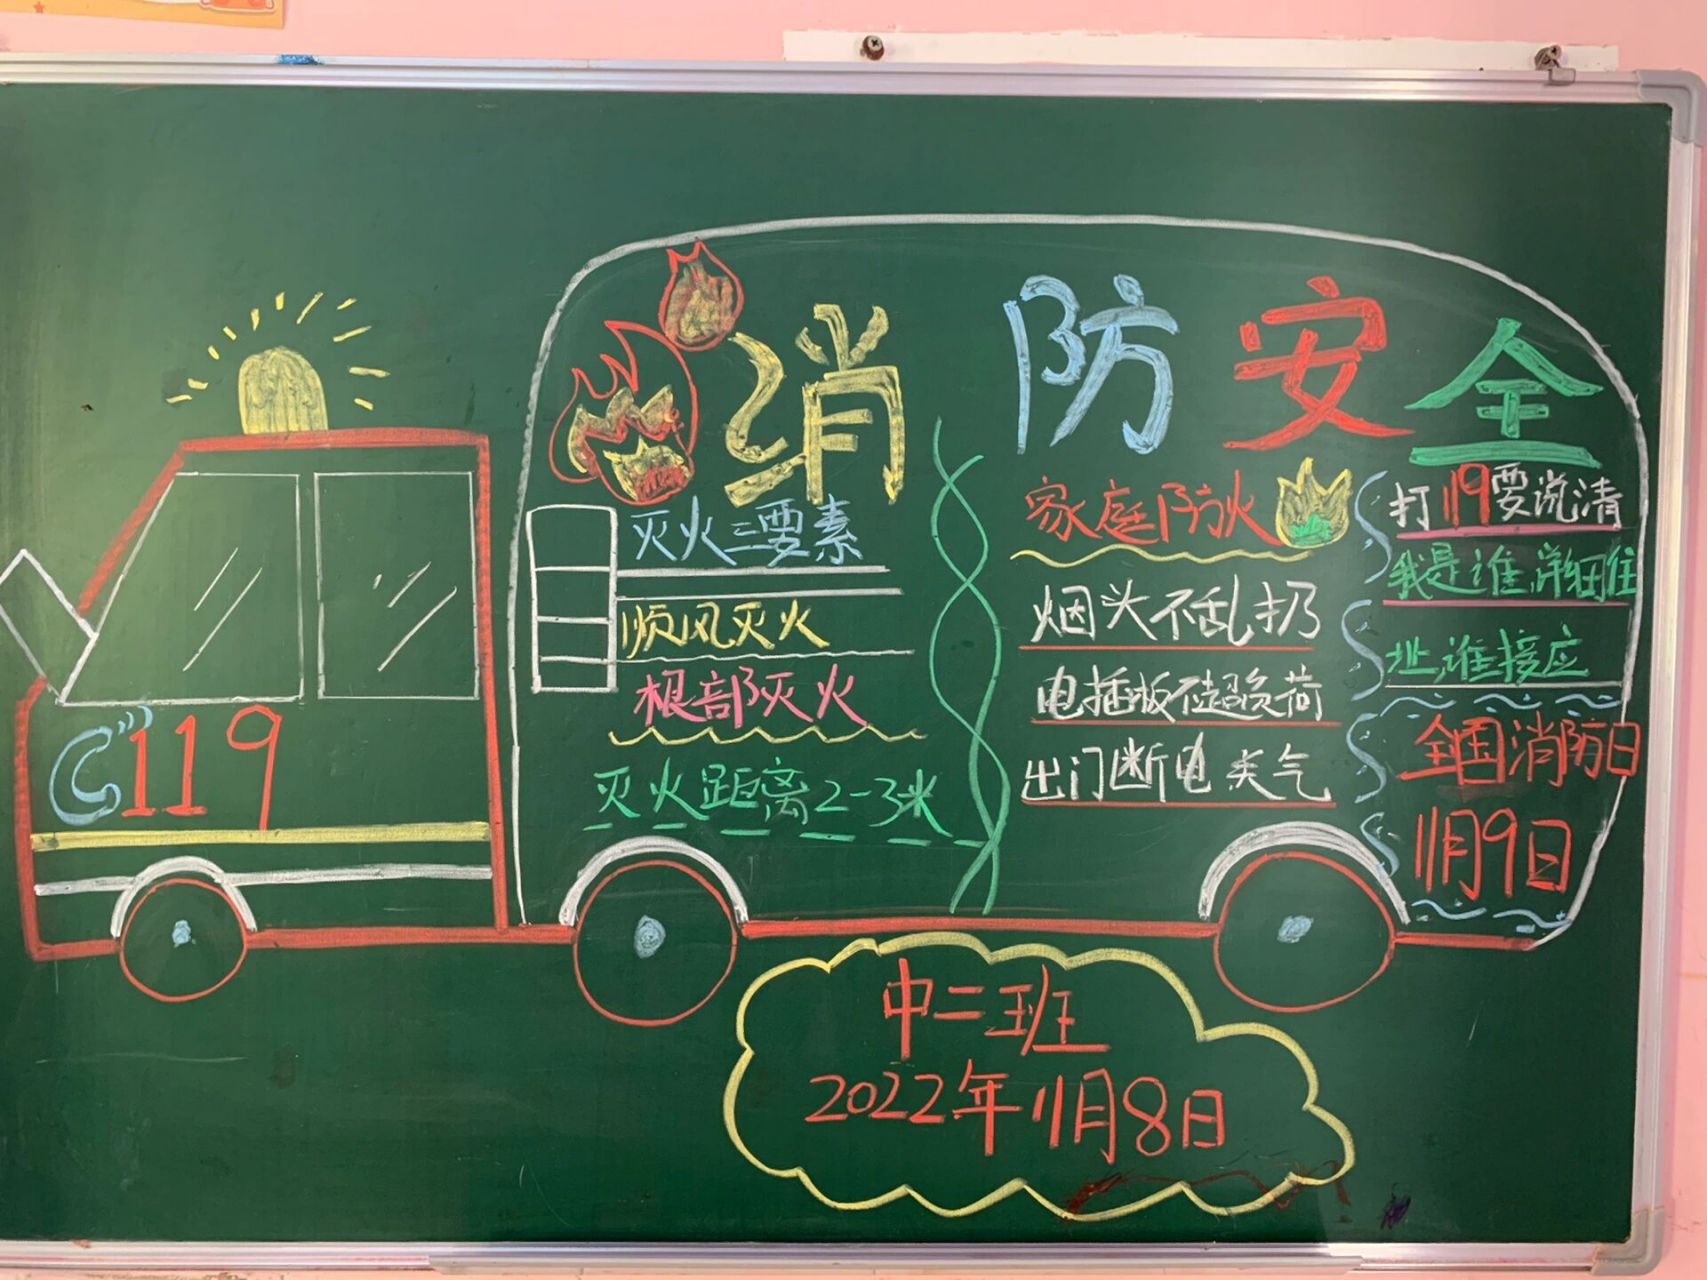 消防安全
119
灭火三要素
顺风灭火
根部灭火
灭火距离2-3米
家庭防火
烟头不乱扔
电插板不超负荷
出门断电关气
打119要说清
我是谁,详细住
址,谁接应
全国消防日
11月9日
中二班
2022年11月8日